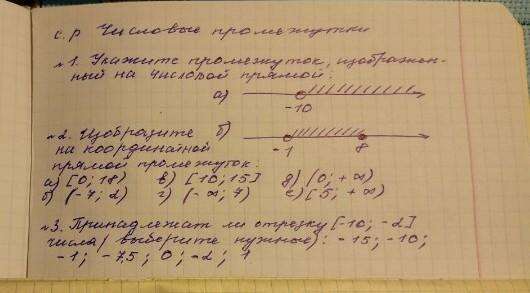 с.р Числовые промежутки
№1. Укажите промежуток, изображен-
ный на числовой прямой.
а)
-10
№2. Изобразите б)
на координатной -1 8
прямой промежуток:
а) [0; 18) в) [10; 15] д) (0; +∞)
б) (-7; 2) г) (-∞; 7) е) [5; +∞)
№3. Принадлежат ли отрезку [-10; -2]
числа (выберите нужное): -15; -10;
-1; -7,5; 0; -2; 1